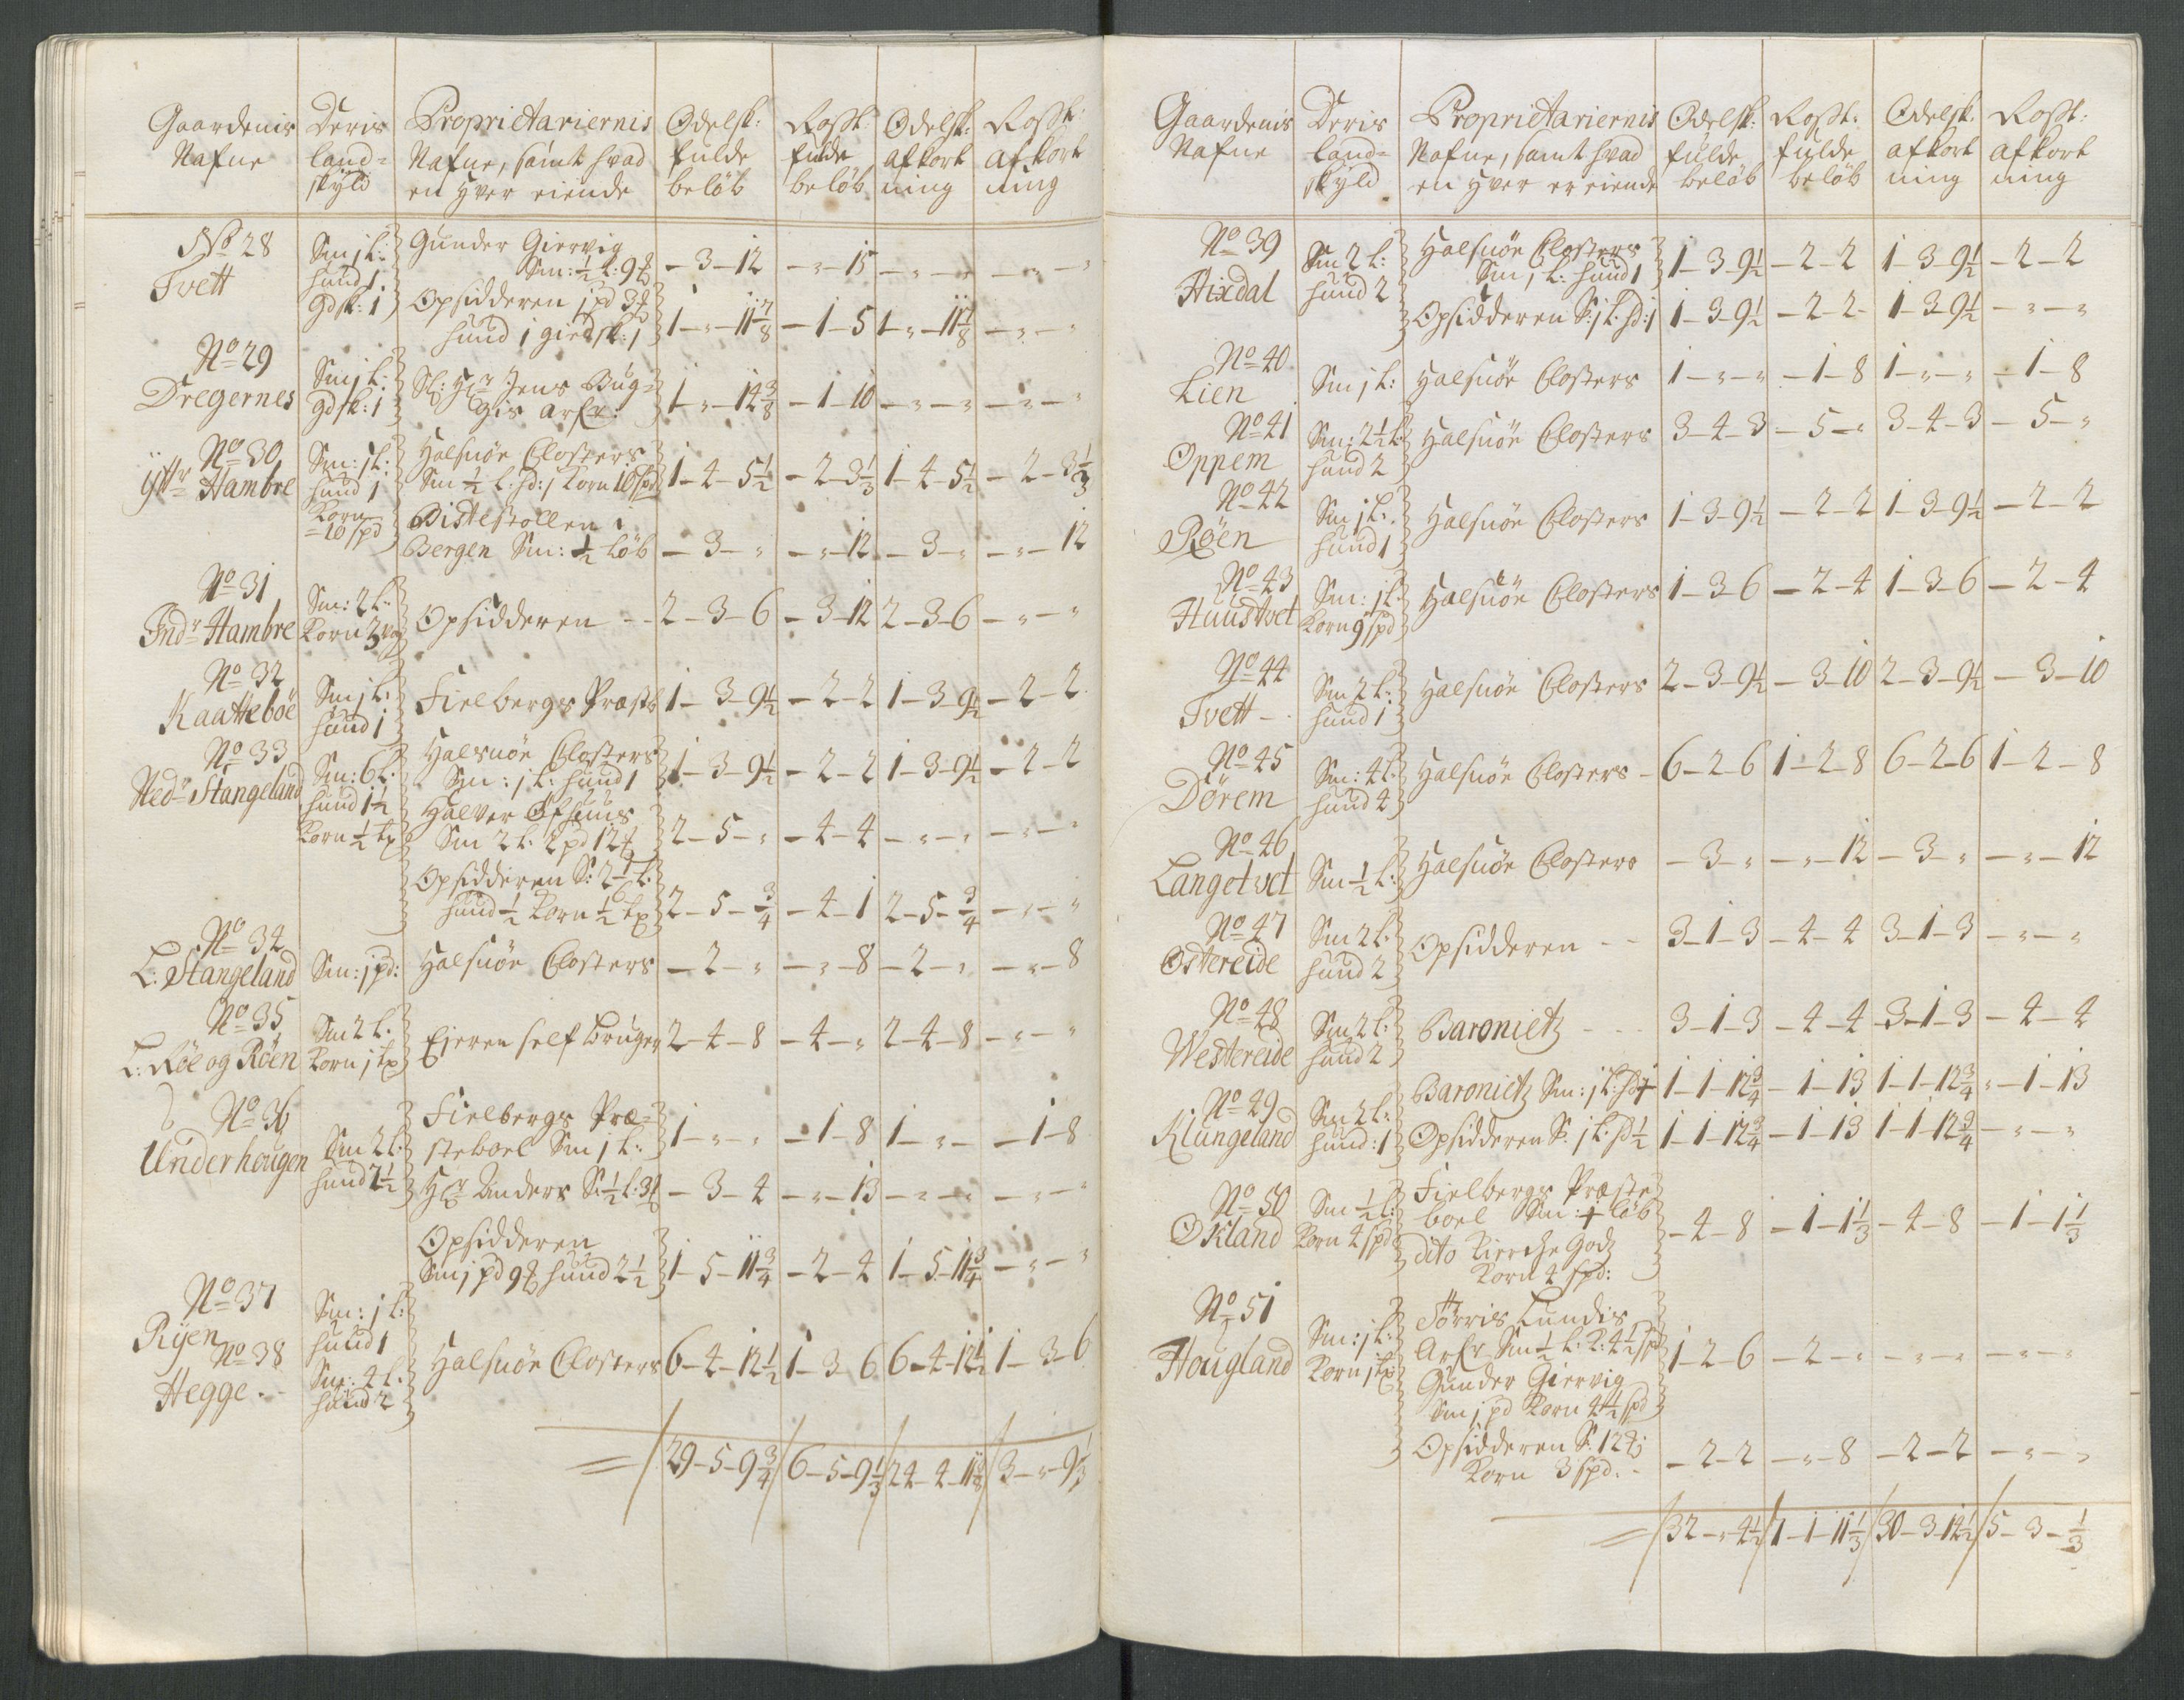 Gaardenis Nafne | Deris land= skyld | Proprietariernis Nafne, samt hvad en hver eiende | Odelsk: fulde beløb | Rosst: fulde beløb | Odelsk: afkort ning | Rosst: afkort ning
No 28 Tvett | Sm j l: hund 1 gdsk: 1 | Gunder Giervig
Sm: ½ l: 9 ℔ | - 3 - 12 | - " - 15 | - " - " | - " - "
Opsidderen j pd 3 ℔
hund 1 giedsk: 1 | 1 - " - 11 7/8 | - 1 - 5 | 1 - " - 11 7/8 | - " - "
No 29 Dregernes | Sm j l: gdsk: 1 | Sl: Hr Jens Bug=
gis arfr: | 1 - " - 14 3/8 | - 1 - 10 | - " - " | - " - "
No 30 Ÿttr Hambre | Sm: j l: hund 1 Korn 10 spd | Halsnöe Closters
Sm ½ l: hd: 1 Korn 10 spd | 1 - 4 - 5½ | - 2 - 3⅓ | 1 - 4 - 5½ | - 2 - 3⅓
Bistestollen i
Bergen Sm: ½ løb | - 3 - " | - " - 12 | - 3 - " | - " - 12
No 31 Indr Hambre | Sm: 2 l: Korn 3 | Opsidderen | 2 - 3 - 6 | - 3 - 12 | 2 - 3 - 6 | - " - "
No 32 Kaatteböe | Sm j l: hund 1 | Fielbergs Præstb | 1 - 3 - 9½ | - 2 - 2 | 1 - 3 - 9½ | - 2 - 2
No 33 Nedr Stangeland | Sm: 6 l: hund 1½ Korn ½ tp | Halsnöe Closters
Sm: j l: hund 1 | 1 - 3 - 9½ | - 2 - 2 | 1 - 3 - 9½ | - 2 - 2
Halver Øfhuus
Sm 2 l: 2 pd 12 ℔ | 2 - 5 - " | - 4 - 4 | - " - " | - " - "
Opsidderen S: 2½ l:
hund ½ Korn ½ tp | 2 - 5 - ¾ | - 4 - 1 | 2 - 5 - ¾ | - " - "
No 34 L: Stangeland | Sm: j pd: | Halsnöe Closters | - 2 - " | - " - 8 | - 2 - " | - " - 8
No 35 L: Røe og Røen | Sm 2 l. Korn j tp | Ejeren self bruger | 2 - 4 - 8 | - 4 - " | 2 - 4 - 8 | - " - "
No 36 Underhougen | Sm 2 l: hund 2½ | Fielbergs Præ=
steboel Sm j l: | 1 - " - " | - 1 - 8 | 1 - " - | - 1 - 8
Hr Anders S: ½ l: 3 ℔ | - 3 - 4 | - " - 13 | - " - " | - " - "
Opsidderen
Sm j pd 9 ℔ hund 2½ | 1 - 5 - 11¾ | - 2 - 4 | 1 - 5 - 11¾ | - " - "
No 37 Rÿen | Sm: j l: hund 1
No 38 Hegge | Sm: 4 l: hund 2 | Halsnöe Closters | 6 - 4 - 12½ | 1 - 3 - 6 | 6 - 4 - 12½ | 1 - 3 - 6
= / 29 - 5 - 9¾ / 6 - 5 - 9⅓ / 24 - 4 - 11 / 3 - " - 9⅓
Gaardenis Nafne | Deris land= skyld | Proprietariernis Nafne, samt hvad en hver er eiende | Odelsk: fulde beløb | Rosst: fulde beløb | Odelsk. afkort ning | Rosst: afkort ning
No 39 Hixdal | Sm 2 l: hund 2 | Halsnöe Closters
Sm j l: hund 1 | 1 - 3 - 9½ | - 2 - 2 | 1 - 3 - 9½ | - 2 - 2
Opsidderen S: j l: hd: 1 | 1 - 3 - 9½ | - 2 - 2 - | 1 - 3 - 9½ | - " - "
No 40 Lien | Sm j l: | Halsnöe Closters | 1 - " - " | - 1 - 8 | 1 - " - " | - 1 - 8
No 41 Oppem | Sm: 2½ l: hund 2 | Halsnöe Closters | 3 - 4 - 3 | - 5 - " | 3 - 4 - 3 | - 5 - "
No 42 Röen | Sm j l: hund 1 | Halsnöe Closters | 1 - 3 - 9½ | - 2 - 2 | 1 - 3 - 9½ | - 2 - 2
No 43 Huustvet | Sm: j l: Korn 9 spd | Halsnöe Closters | 1 - 3 - 6 | - 2 - 4 | 1 - 3 - 6 | - 2 - 4
No 44 Tvett | Sm 2 l: hund 1 | Halsnöe Closters | 2 - 3 - 9½ | - 3 - 10 | 2 - 3 - 9½ | - 3 - 10
No 45 Dörem | Sm: 4 l: hund 4 | Halsnöe Closters | 6 - 2 - 6 | 1 - 2 - 8 | 6 - 2 - 6 | 1 - 2 - 8
No 46 Langetvet | Sm ½ l: | Halsnöe Closters | - 3 - " | - " - 12 | - 3 - " | - " - 12
No 47 Østereide | Sm 2 l: hund 2 | Opsidderen | 3 - 1 - 3 | - 4 - 4 | 3 - 1 - 3 | - " - "
No 48 Westereide | Sm 2 l: hund 2 | Baronietz | 3 - 1 - 3 | - 4 - 4 | 3 - 1 - 3 | - 4 - 4
No 49 Klungeland | Sm 2 l: hund: 1 | Baronietz Sm: j l: hd ½ | 1 - 1 - 12¾ | - 1 - 13 | 1 - 1 - 12¾ | " - 1 - 13
Opsidderen S: j l: hd ½ | 1 - 1 - 12¾ | - 1 - 13 | 1 - 1 - 12¾ | - " - "
No 50 Økland | Sm ½ l: Korn 4 spd | Fielbergs Præste
boel Sm: ½ løb
dito Kierche Godz
Korn 4 spd: | - 4 - 8 | - 1 - 1⅓ | - 4 - 8 | - 1 - 1⅓
No 51 Hougland | Sm: j l: Korn j tp | Torris Lundis
Arfr Sm ½ l: K: 4½ spd
Gunder Giervig
Sm j pd Korn 4½ spd | 1 - 2 - 6 | - 2 - " | - " - " | - " - "
Opsidderen S: 12 ℔
Korn 3 spd. | - 2 - 2 | - " - 8 | - 2 - 2 | - " - "
= / 32 - " - 4½ / 7 - 1 - 11⅓ / 30 - 3 - 14½ / 5 - 3 - ⅓